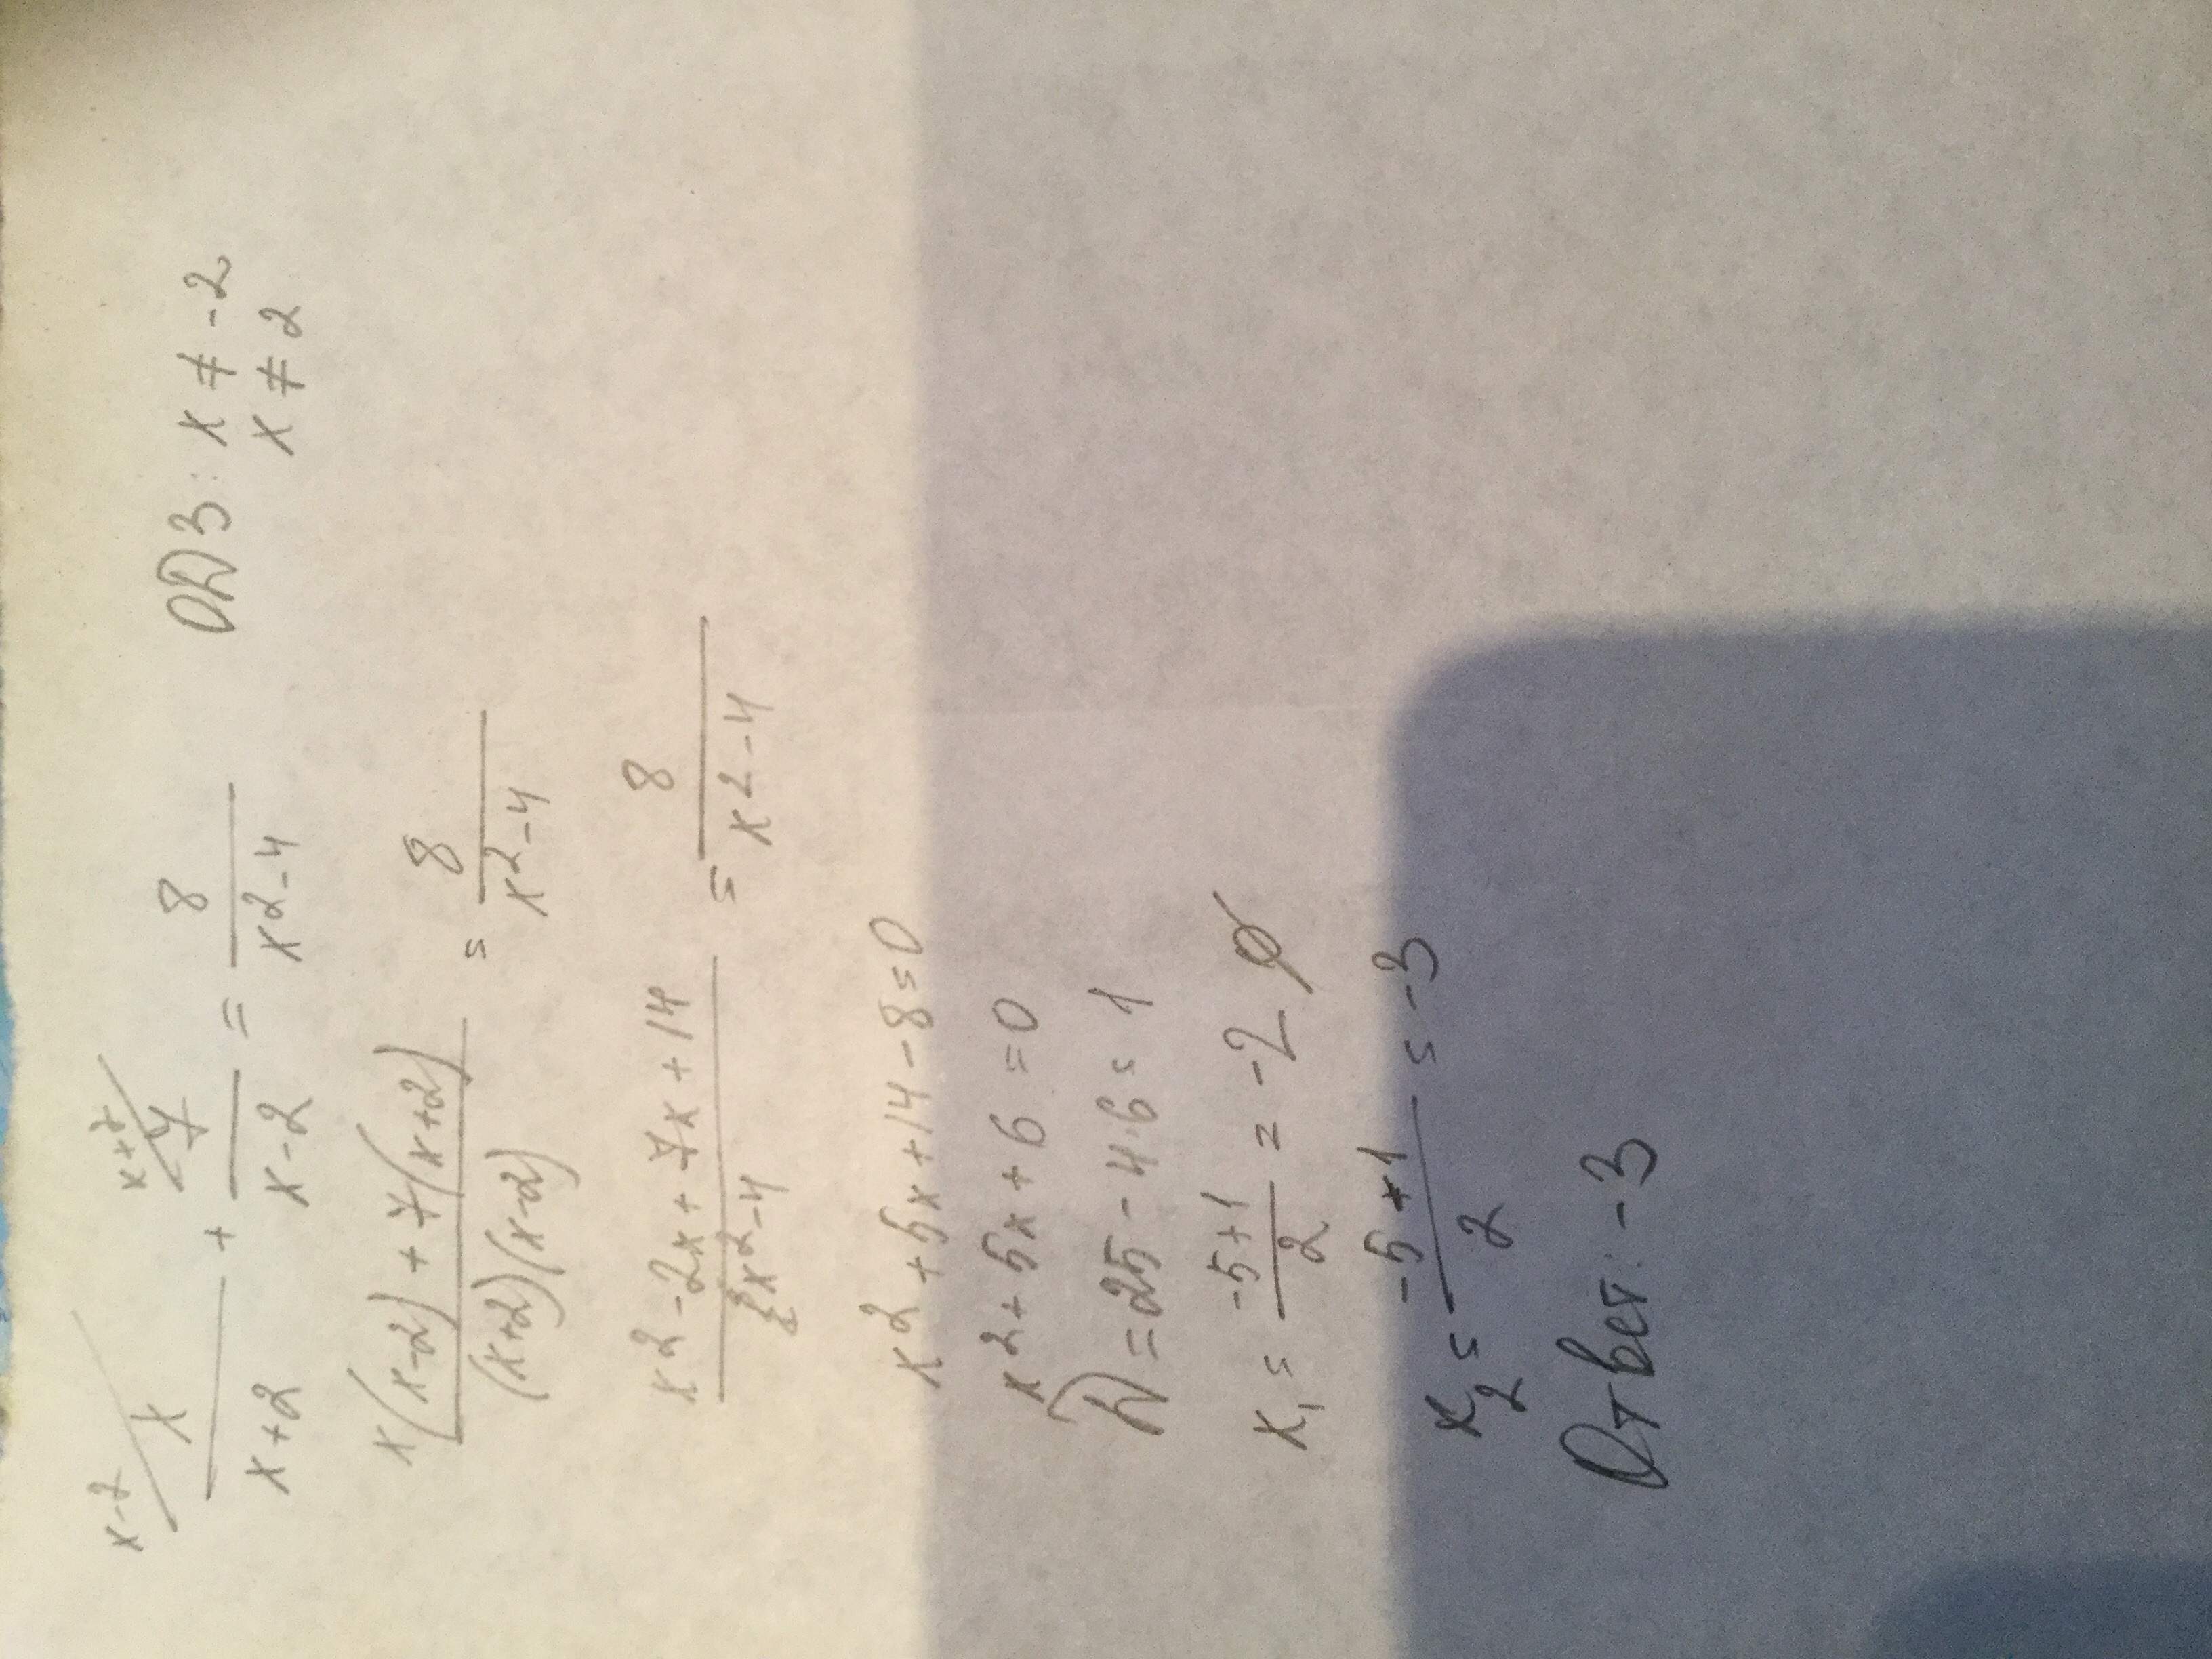 x-2/ x/(x+2) + x+2/ 7/(x-2) = 8/(x²-4) ОДЗ: x ≠ -2
x ≠ 2
(x(x-2)+7(x+2))/((x+2)(x-2)) = 8/(x²-4)
(x²-2x+7x+14)/(x²-4) = 8/(x²-4)
x²+5x+14-8=0
x²+5x+6=0
D=25-4·6=1
x₁=(-5+1)/2=-2 ∅
x₂=(-5+1)/2=-3
Ответ: -3